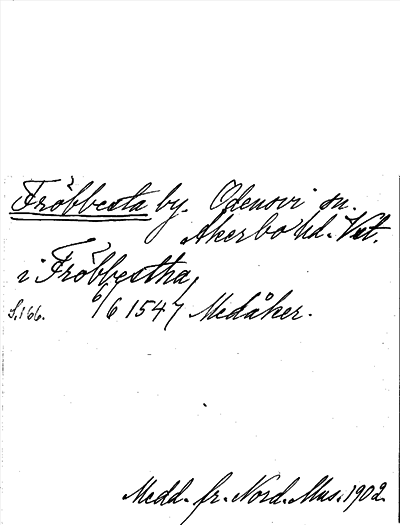 Fröbbesta by. Odensvi sn.
Åkerbo hd. Vst.
i Fröbbestha
S. 166. 6/6 1547 Medåker.
Medd. fr. Nord. Mus. 1902.